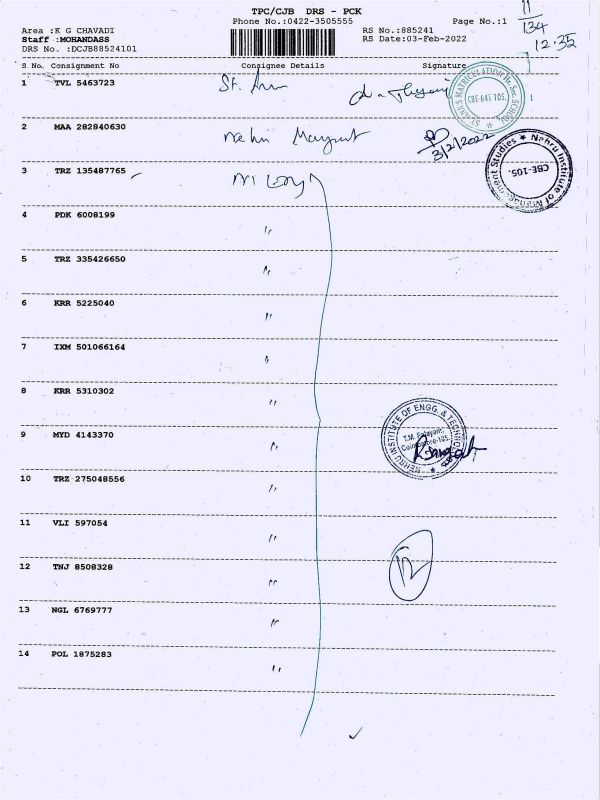 TPC/CJB DRS - PCK
Phone No.:0422-3505555
Page No.:1
11
134
12.35
Area :K G CHAVADI
Staff :MOHANDASS
DRS No. :DCJB88524101
RS No.:885241
RS Date:03-Feb-2022
S No. Consignment No Consignee Details Signature
1 TVL 5463723 St. Ann
ST. ANN'S MATRICULATION Hr. Sec. SCHOOL
CBE-641 105.
2 MAA 282840630
3/2/2022
Nehru Institute of Management Studies
CBE-105.
3 TRZ 135487765
4 PDK 6008199 "
5 TRZ 335426650 "
6 KRR 5225040 "
7 IXM 501066164 "
8 KRR 5310302 "
NEHRU INSTITUTE OF ENGG. & TECHNOLOGY
T.M. Palayam,
Coimbatore-105.
9 MYD 4143370 "
10 TRZ 275048556 "
11 VLI 597054 "
12 TNJ 8508328 "
12
13 NGL 6769777 "
14 POL 1875283 "